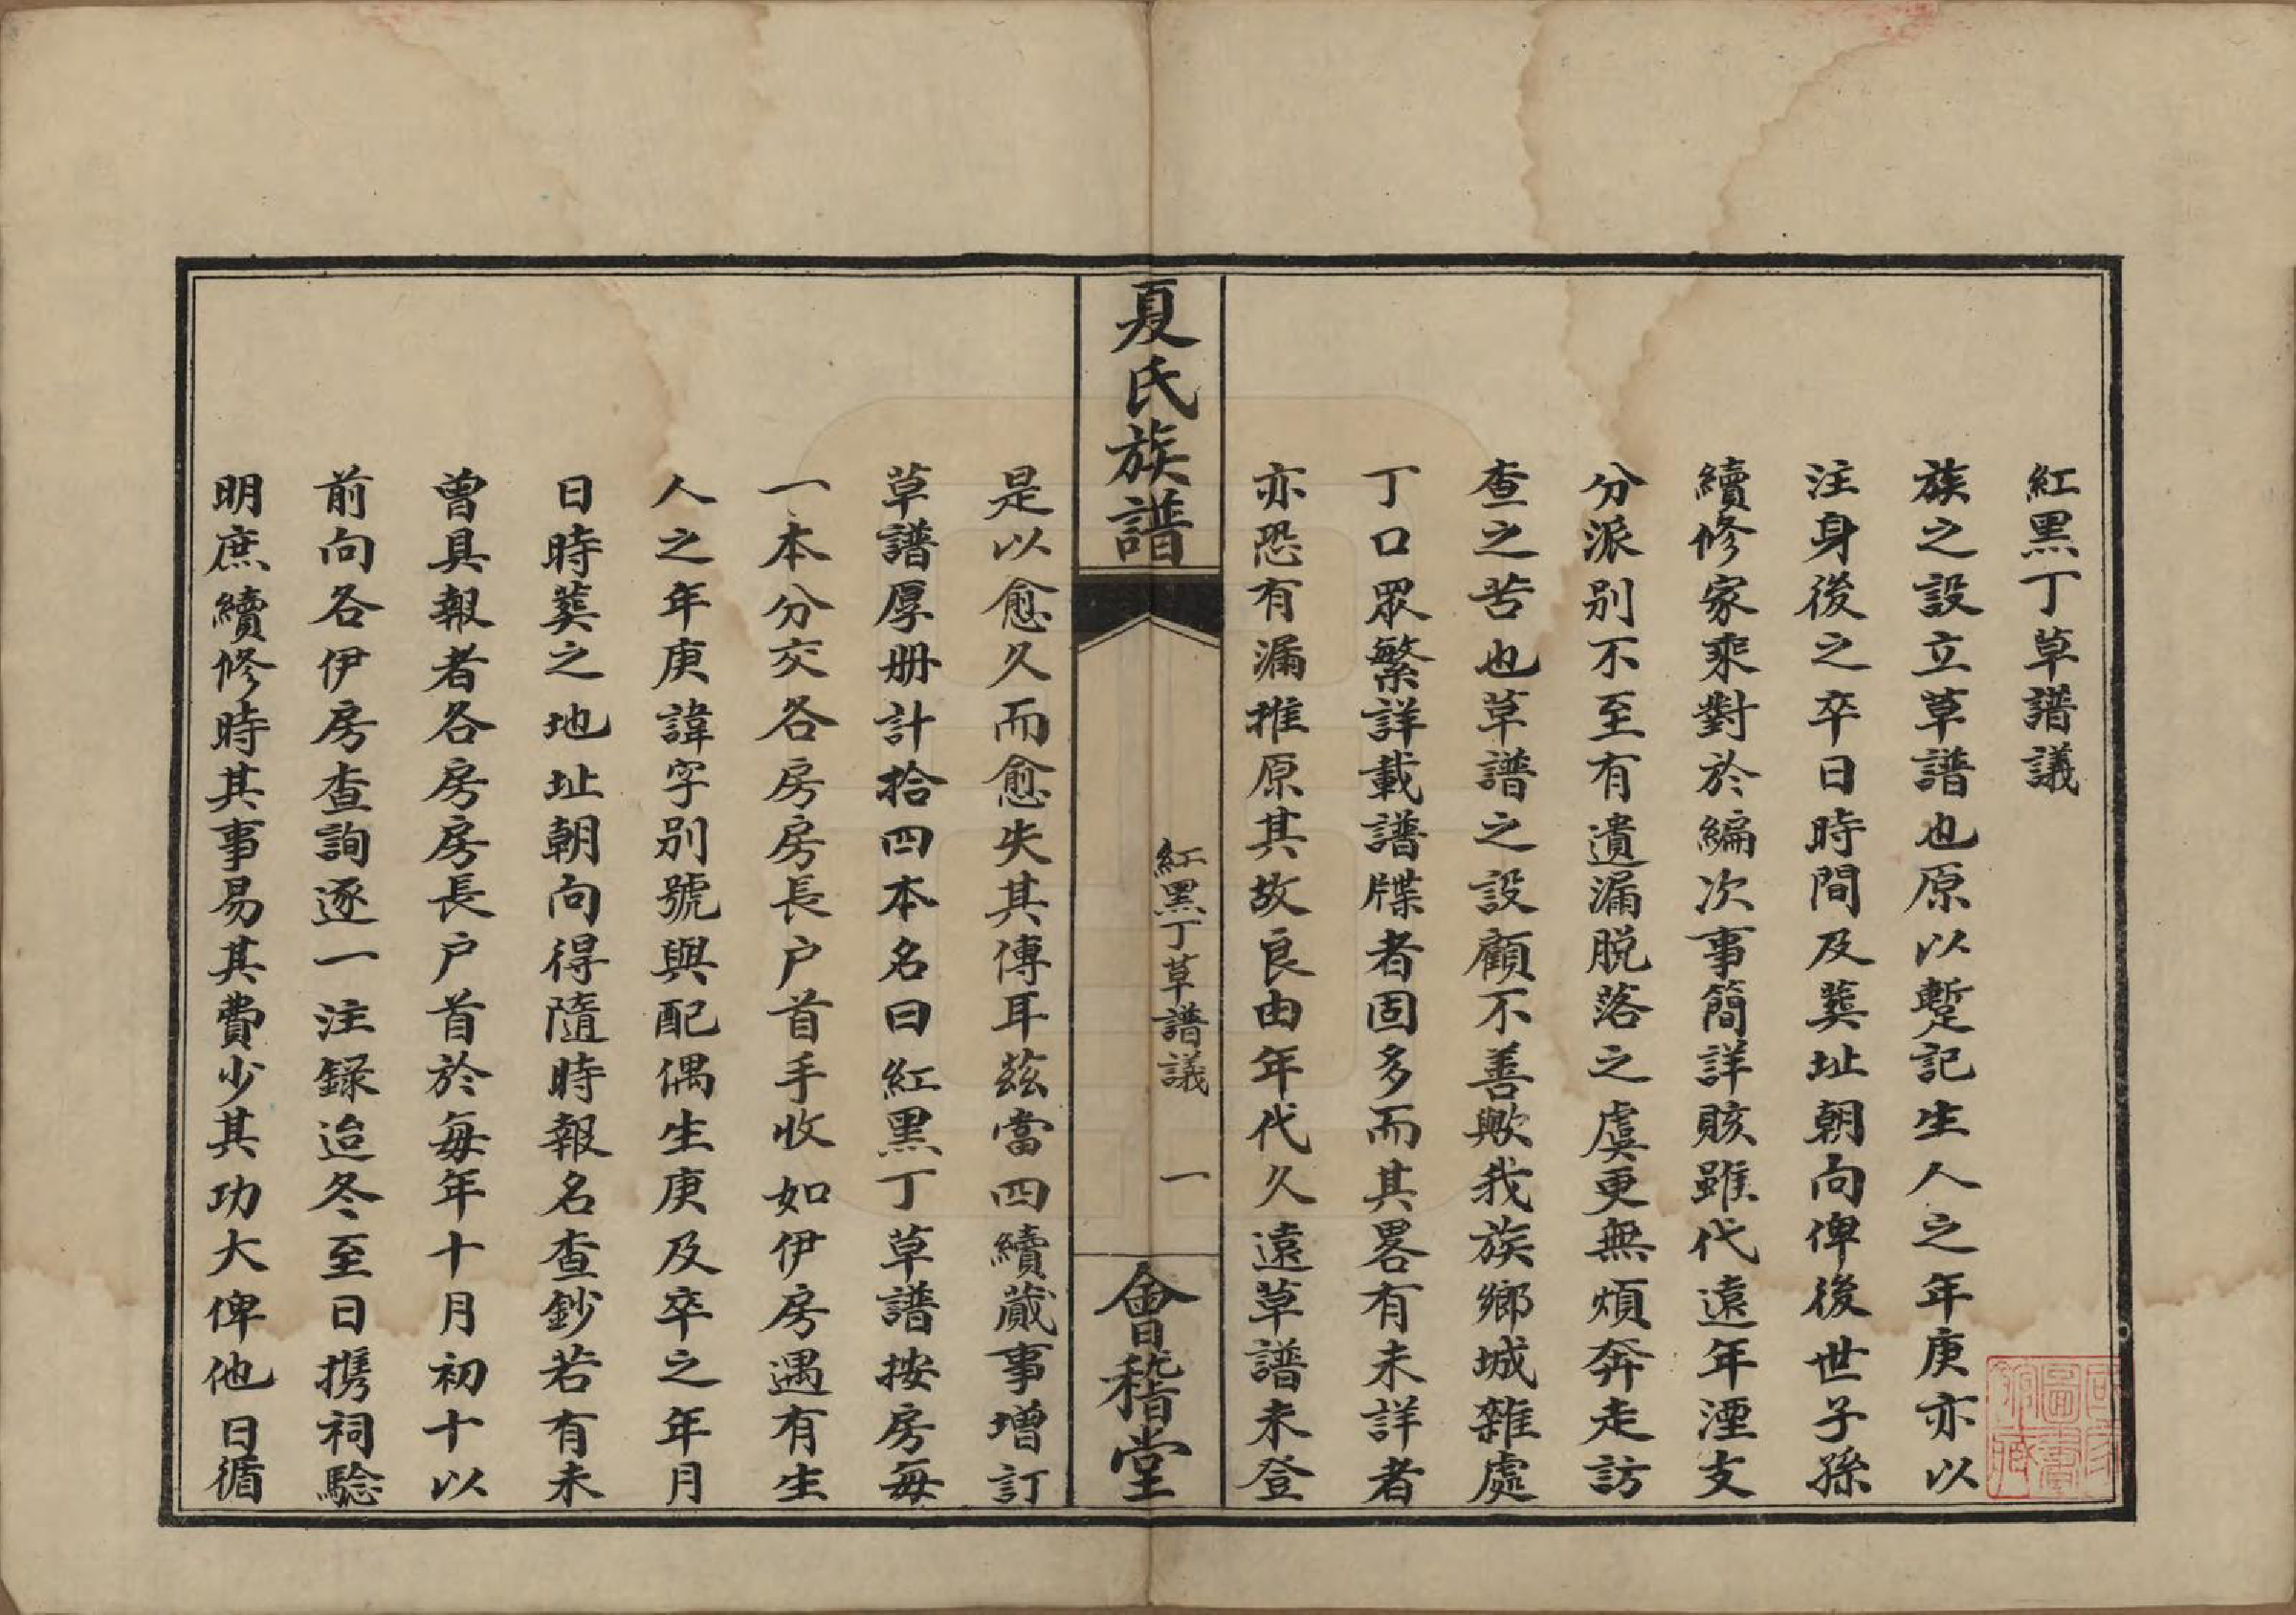 紅黑丁草譜議
族之設立草譜也原以暫記生人之年庚亦以
注身後之卒日時間及葬址朝向俾後世子孫
續修家乘對於編次事簡詳賅雖代遠年湮支
分派別不至有遺漏脫落之虞更無煩奔走訪
查之苦也草譜之設顧不善歟我族鄉城雜處
丁口眾繁詳載譜牒者固多而其畧有未詳者
亦恐有漏推原其故良由年代久遠草譜未登
夏氏族譜
紅黑丁草譜議 一
會稽堂
是以愈久而愈失其傳耳茲當四續蕆事增訂
草譜厚册計拾四本名曰紅黑丁草譜按房每
一本分交各房房長户首手收如伊房遇有生
人之年庚諱字別號與配偶生庚及卒之年月
日時葬之地址朝向得隨時報名查鈔若有未
曾具報者各房房長户首於每年十月初十以
前向各伊房查詢逐一注録迨冬至日携祠驗
明庶續修時其事易其費少其功大俾他日循